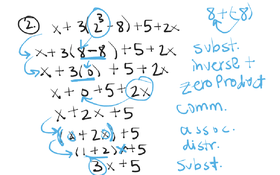 2. x + 3(2³ - 8) + 5 + 2x
8 + (-8)
x + 3(8 - 8) + 5 + 2x subst.
x + 3(0) + 5 + 2x inverse +
x + 0 + 5 + 2x zero Product
x + 2x + 5 comm.
(x + 2x) + 5 assoc.
(1 + 2)x + 5 distr.
3x + 5 Subst.